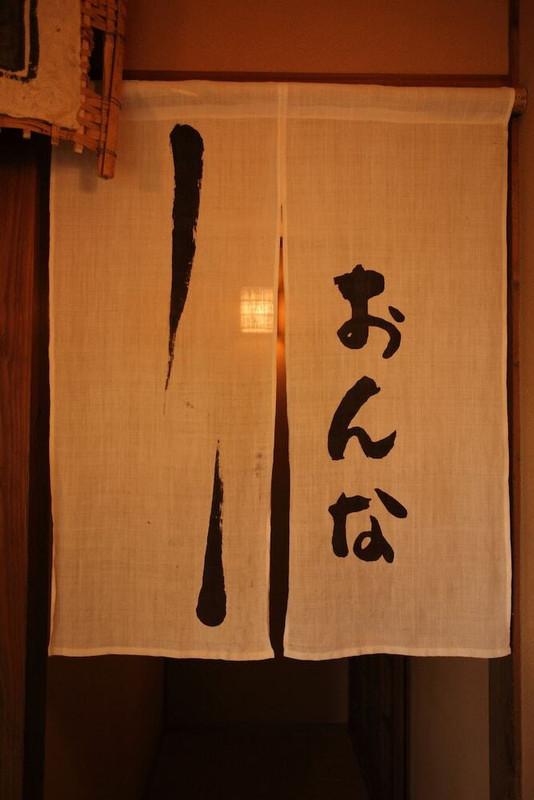 おんな